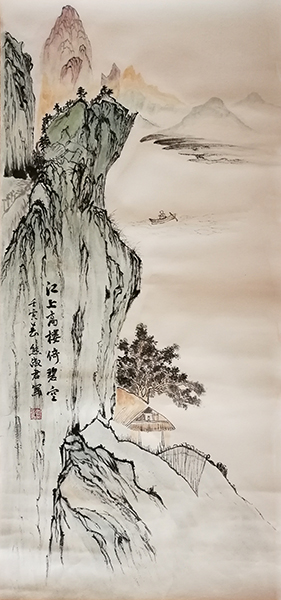 江上高楼倚碧空
壬寅春 熊淑君写